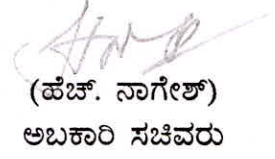 (ಹೆಚ್. ನಾಗೇಶ್)
ಅಬಕಾರಿ ಸಚಿವರು